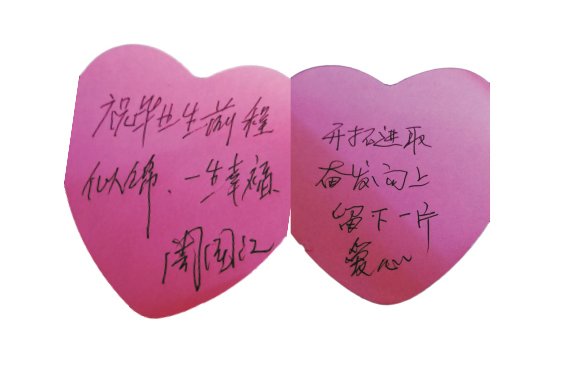 祝毕业生前程
似锦、一生幸福
周国江
开拓进取
奋发向上
留下一片
爱心